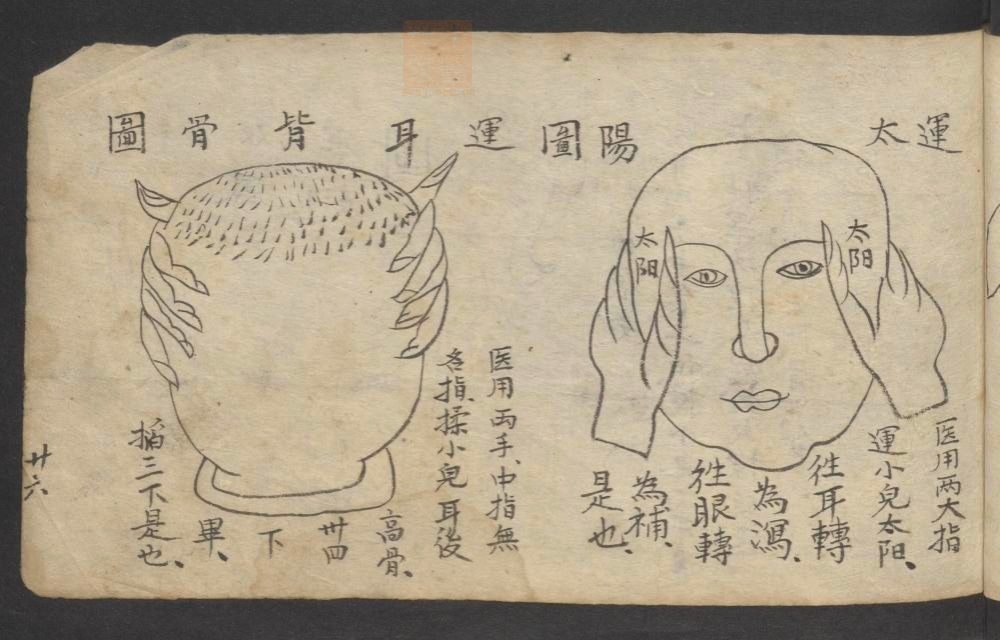 運太陽圖
太阳
太阳
医用两大指
運小兒太阳、
徃耳轉
為瀉、
徃眼轉
為補、
是也、
運耳背骨圖
医用两手、中指無
名指、揉小兒耳後
高骨、
卅四
下
畢、
掐三下是也、
廿六